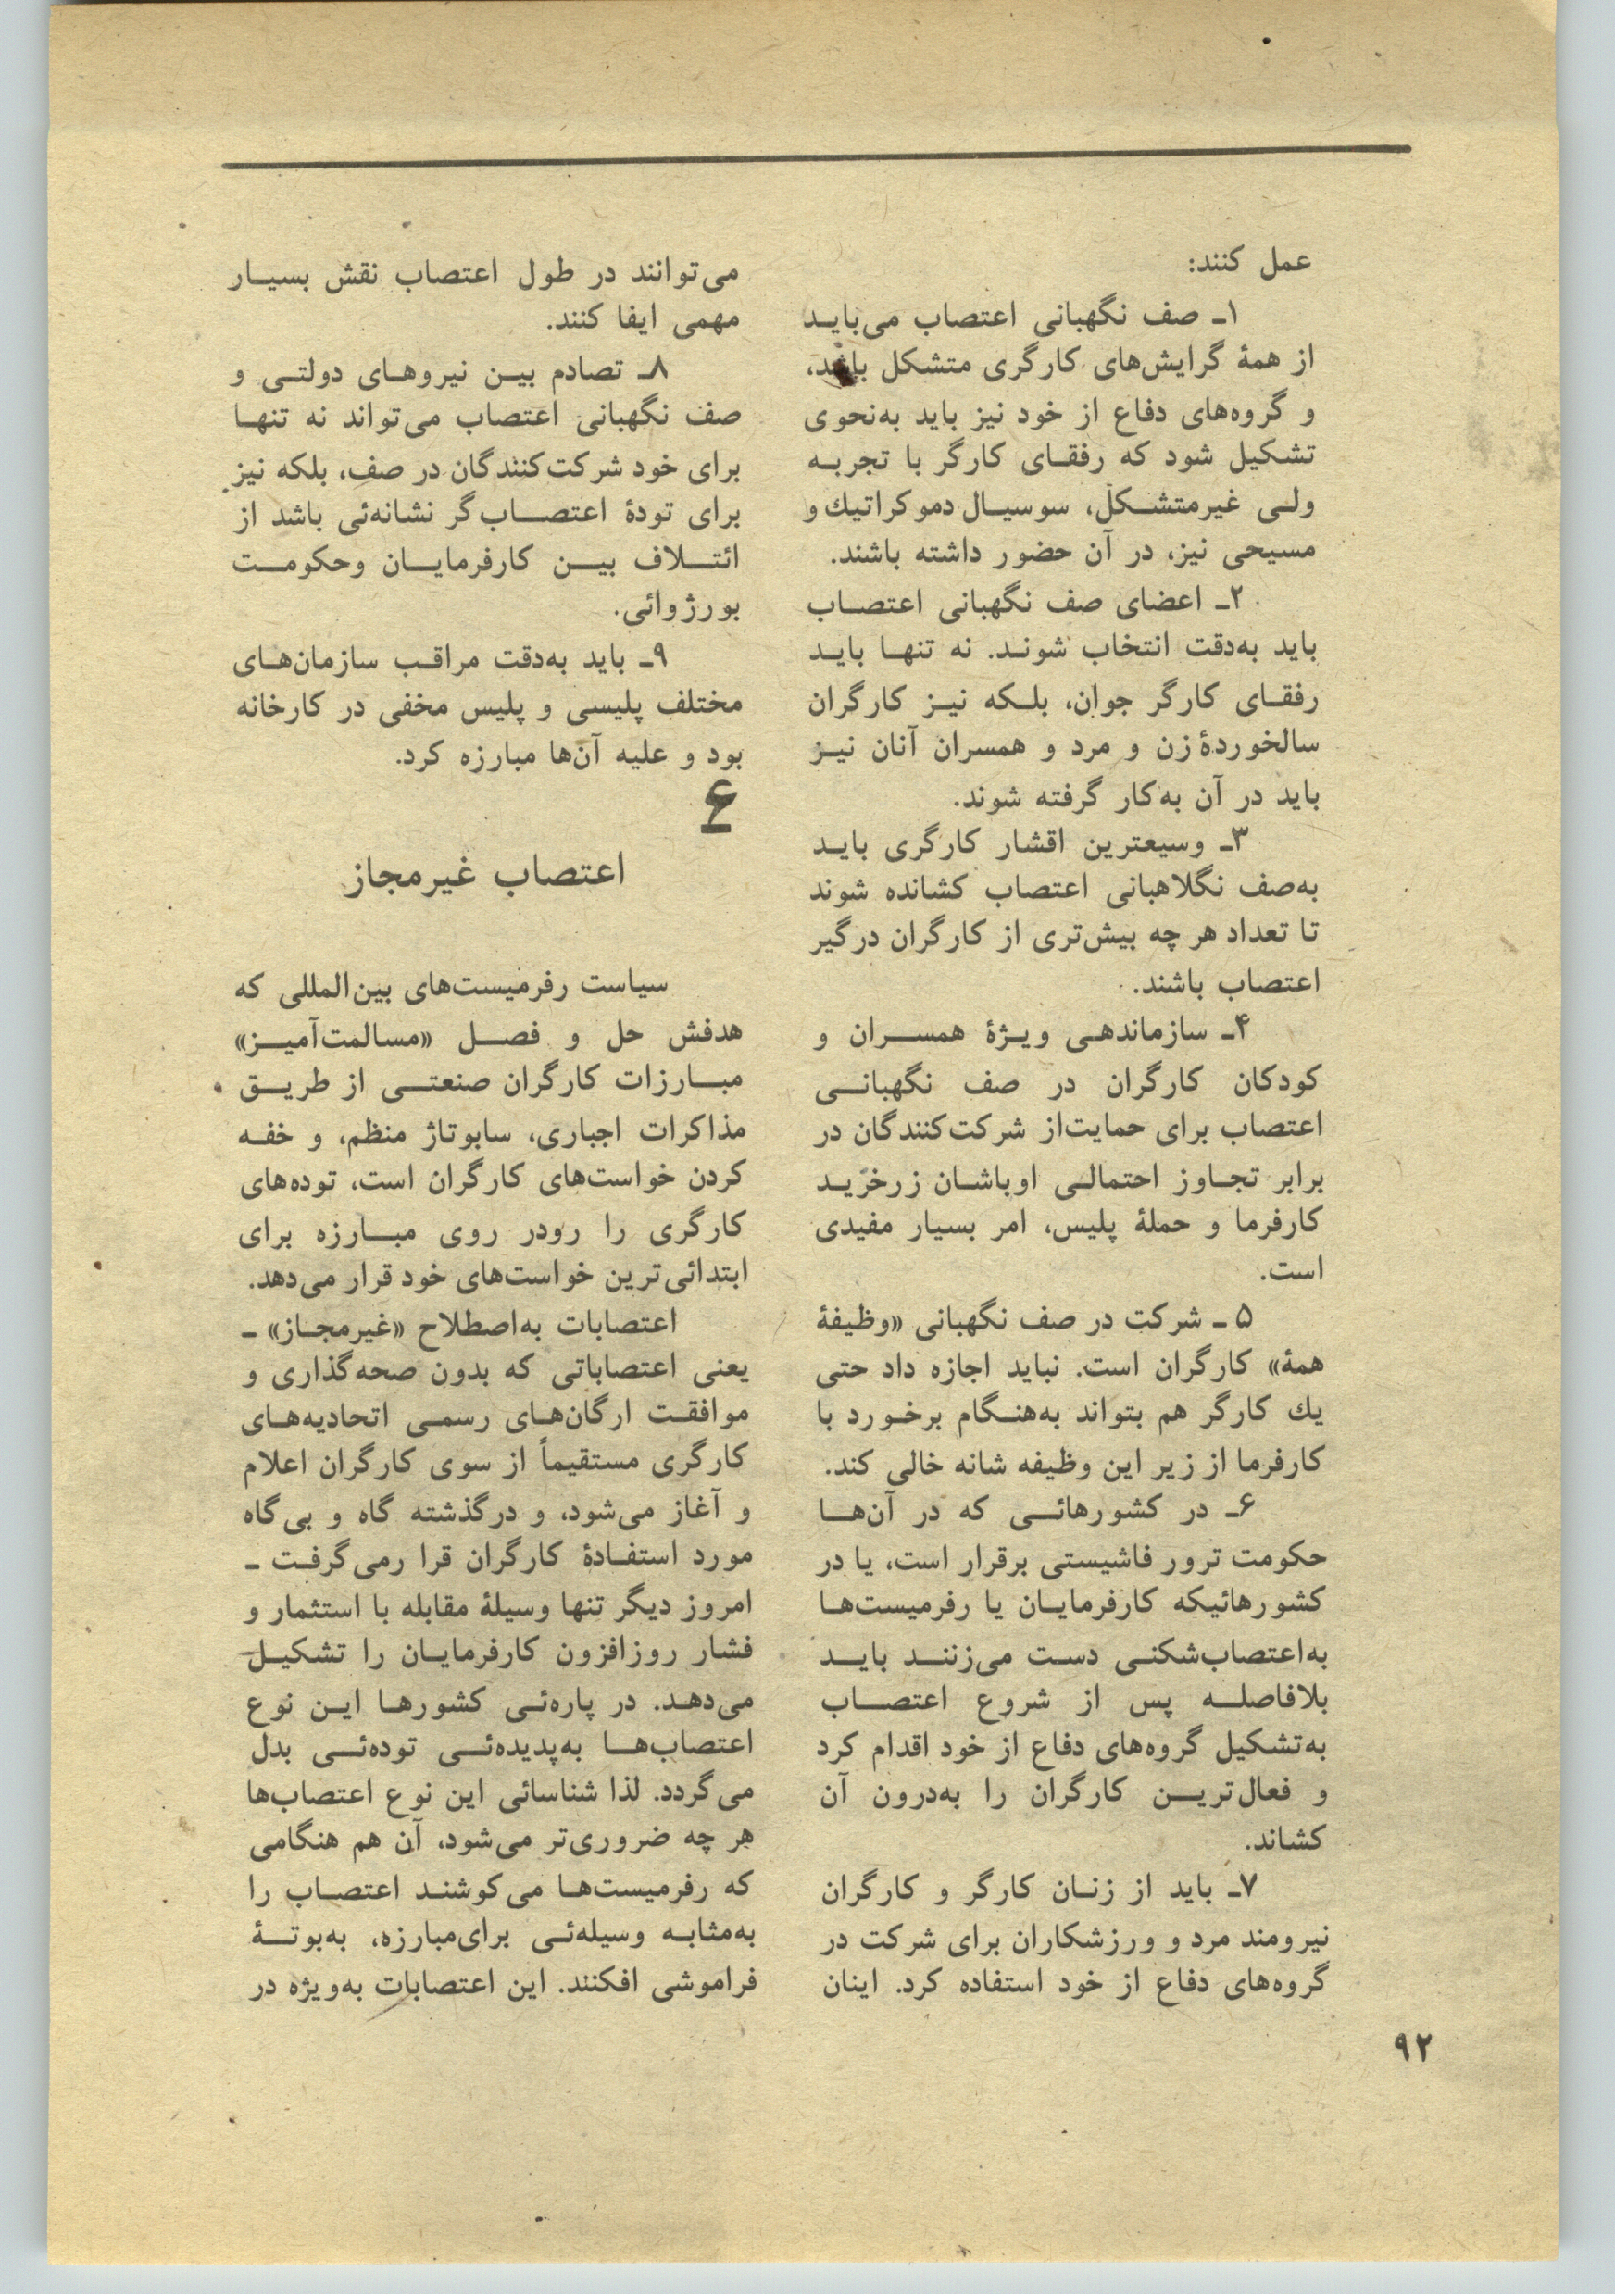 عمل کنند:
۱ـ صف نگهبانی اعتصاب می‌بایـد
از همهٔ گرایش‌های کارگری متشکل باشد،
و گروه‌های دفاع از خود نیز باید به‌نحوی
تشکیل شود که رفقـای کارگر با تجربـه
ولـی غیرمتشـکل، سوسیـال دموکراتیك و
مسیحی نیز، در آن حضور داشته باشند.
۲ـ اعضای صف نگهبانی اعتصـاب
باید به‌دقت انتخاب شونـد. نه تنهـا بایـد
رفقـای کارگر جوان، بلـکه نیـز کارگران
سالخوردهٔ زن و مرد و همسران آنان نیـز
باید در آن به‌کار گرفته شوند.
۳ـ وسیعترین اقشار کارگری بایـد
به‌صف نگلاهبانی اعتصاب کشانده شوند
تا تعداد هر چه بیش‌تری از کارگران درگیر
اعتصاب باشند.
۴ـ سازماندهـی ویـژهٔ همسـران و
کودکان کارگران در صف نگهبانـی
اعتصاب برای حمایت‌از شرکت‌کنندگان در
برابر تجـاوز احتمالـی اوباشـان زرخریـد
کارفرما و حملهٔ پلیس، امر بسیار مفیدی
است.
۵ ـ شرکت در صف نگهبانی «وظیفهٔ
همهٔ» کارگران است. نباید اجازه داد حتی
یك کارگر هم بتواند به‌هنـگام برخـورد با
کارفرما از زیر این وظیفه شانه خالی کند.
۶ـ در کشورهائـی که در آن‌هـا
حکومت ترور فاشیستی برقرار است، یا در
کشورهائیکه کارفرمایـان یا رفرمیست‌هـا
به‌اعتصاب‌شکنـی دسـت می‌زننـد بایـد
بلافاصلـه پس از شروع اعتصـاب
به‌تشکیل گروه‌های دفاع از خود اقدام کرد
و فعال‌تریـن کارگران را به‌درون آن
کشاند.
۷ـ باید از زنـان کارگر و کارگران
نیرومند مرد و ورزشکاران برای شرکت در
گروه‌های دفاع از خود استفاده کرد. اینان
می‌توانند در طول اعتصاب نقش بسیـار
مهمی ایفا کنند.
۸ـ تصادم بیـن نیروهـای دولتـی و
صف نگهبانی اعتصاب می‌تواند نه تنهـا
برای خود شرکت‌کنندگان در صف، بلکه نیز
برای تودهٔ اعتصـاب‌گر نشانه‌ئی باشد از
ائتـلاف بیـن کارفرمایـان وحکومـت
بورژوائی.
۹ـ باید به‌دقت مراقـب سازمان‌هـای
مختلف پلیسی و پلیس مخفی در کارخانه
بود و علیه آن‌ها مبارزه کرد.
۶
اعتصاب غیرمجاز
سیاست رفرمیست‌های بین‌المللی که
هدفش حل و فصـل «مسالمت‌آمیـز»
مبـارزات کارگران صنعتـی از طریـق
مذاکرات اجباری، سابوتاژ منظم، و خفـه
کردن خواست‌های کارگران است، توده‌های
کارگری را رودر روی مبـارزه برای
ابتدائی‌ترین خواست‌های خود قرار می‌دهد.
اعتصابات به‌اصطلاح «غیرمجـاز» ـ
یعنی اعتصاباتی که بدون صحه‌گذاری و
موافقـت ارگان‌هـای رسمـی اتحادیه‌هـای
کارگری مستقیماً از سوی کارگران اعلام
و آغاز می‌شود، و درگذشته گاه و بی‌گاه
مورد استفـادهٔ کارگران قرا رمی‌گرفـت ـ
امروز دیگر تنها وسیلهٔ مقابله با استثمار و
فشار روزافزون کارفرمایـان را تشکیـل
می‌دهـد. در پاره‌ئـی کشورهـا ایـن نوع
اعتصاب‌هـا به‌پدیده‌ئـی توده‌ئـی بدل
می‌گردد. لذا شناسائی این نوع اعتصاب‌ها
هر چه ضروری‌تر می‌شود، آن هم هنگامی
که رفرمیست‌هـا می‌کوشنـد اعتصـاب را
به‌مثابـه وسیله‌ئـی برای‌مبارزه، به‌بوتـهٔ
فراموشی افکنند. این اعتصابات به‌ویژه در
۹۲